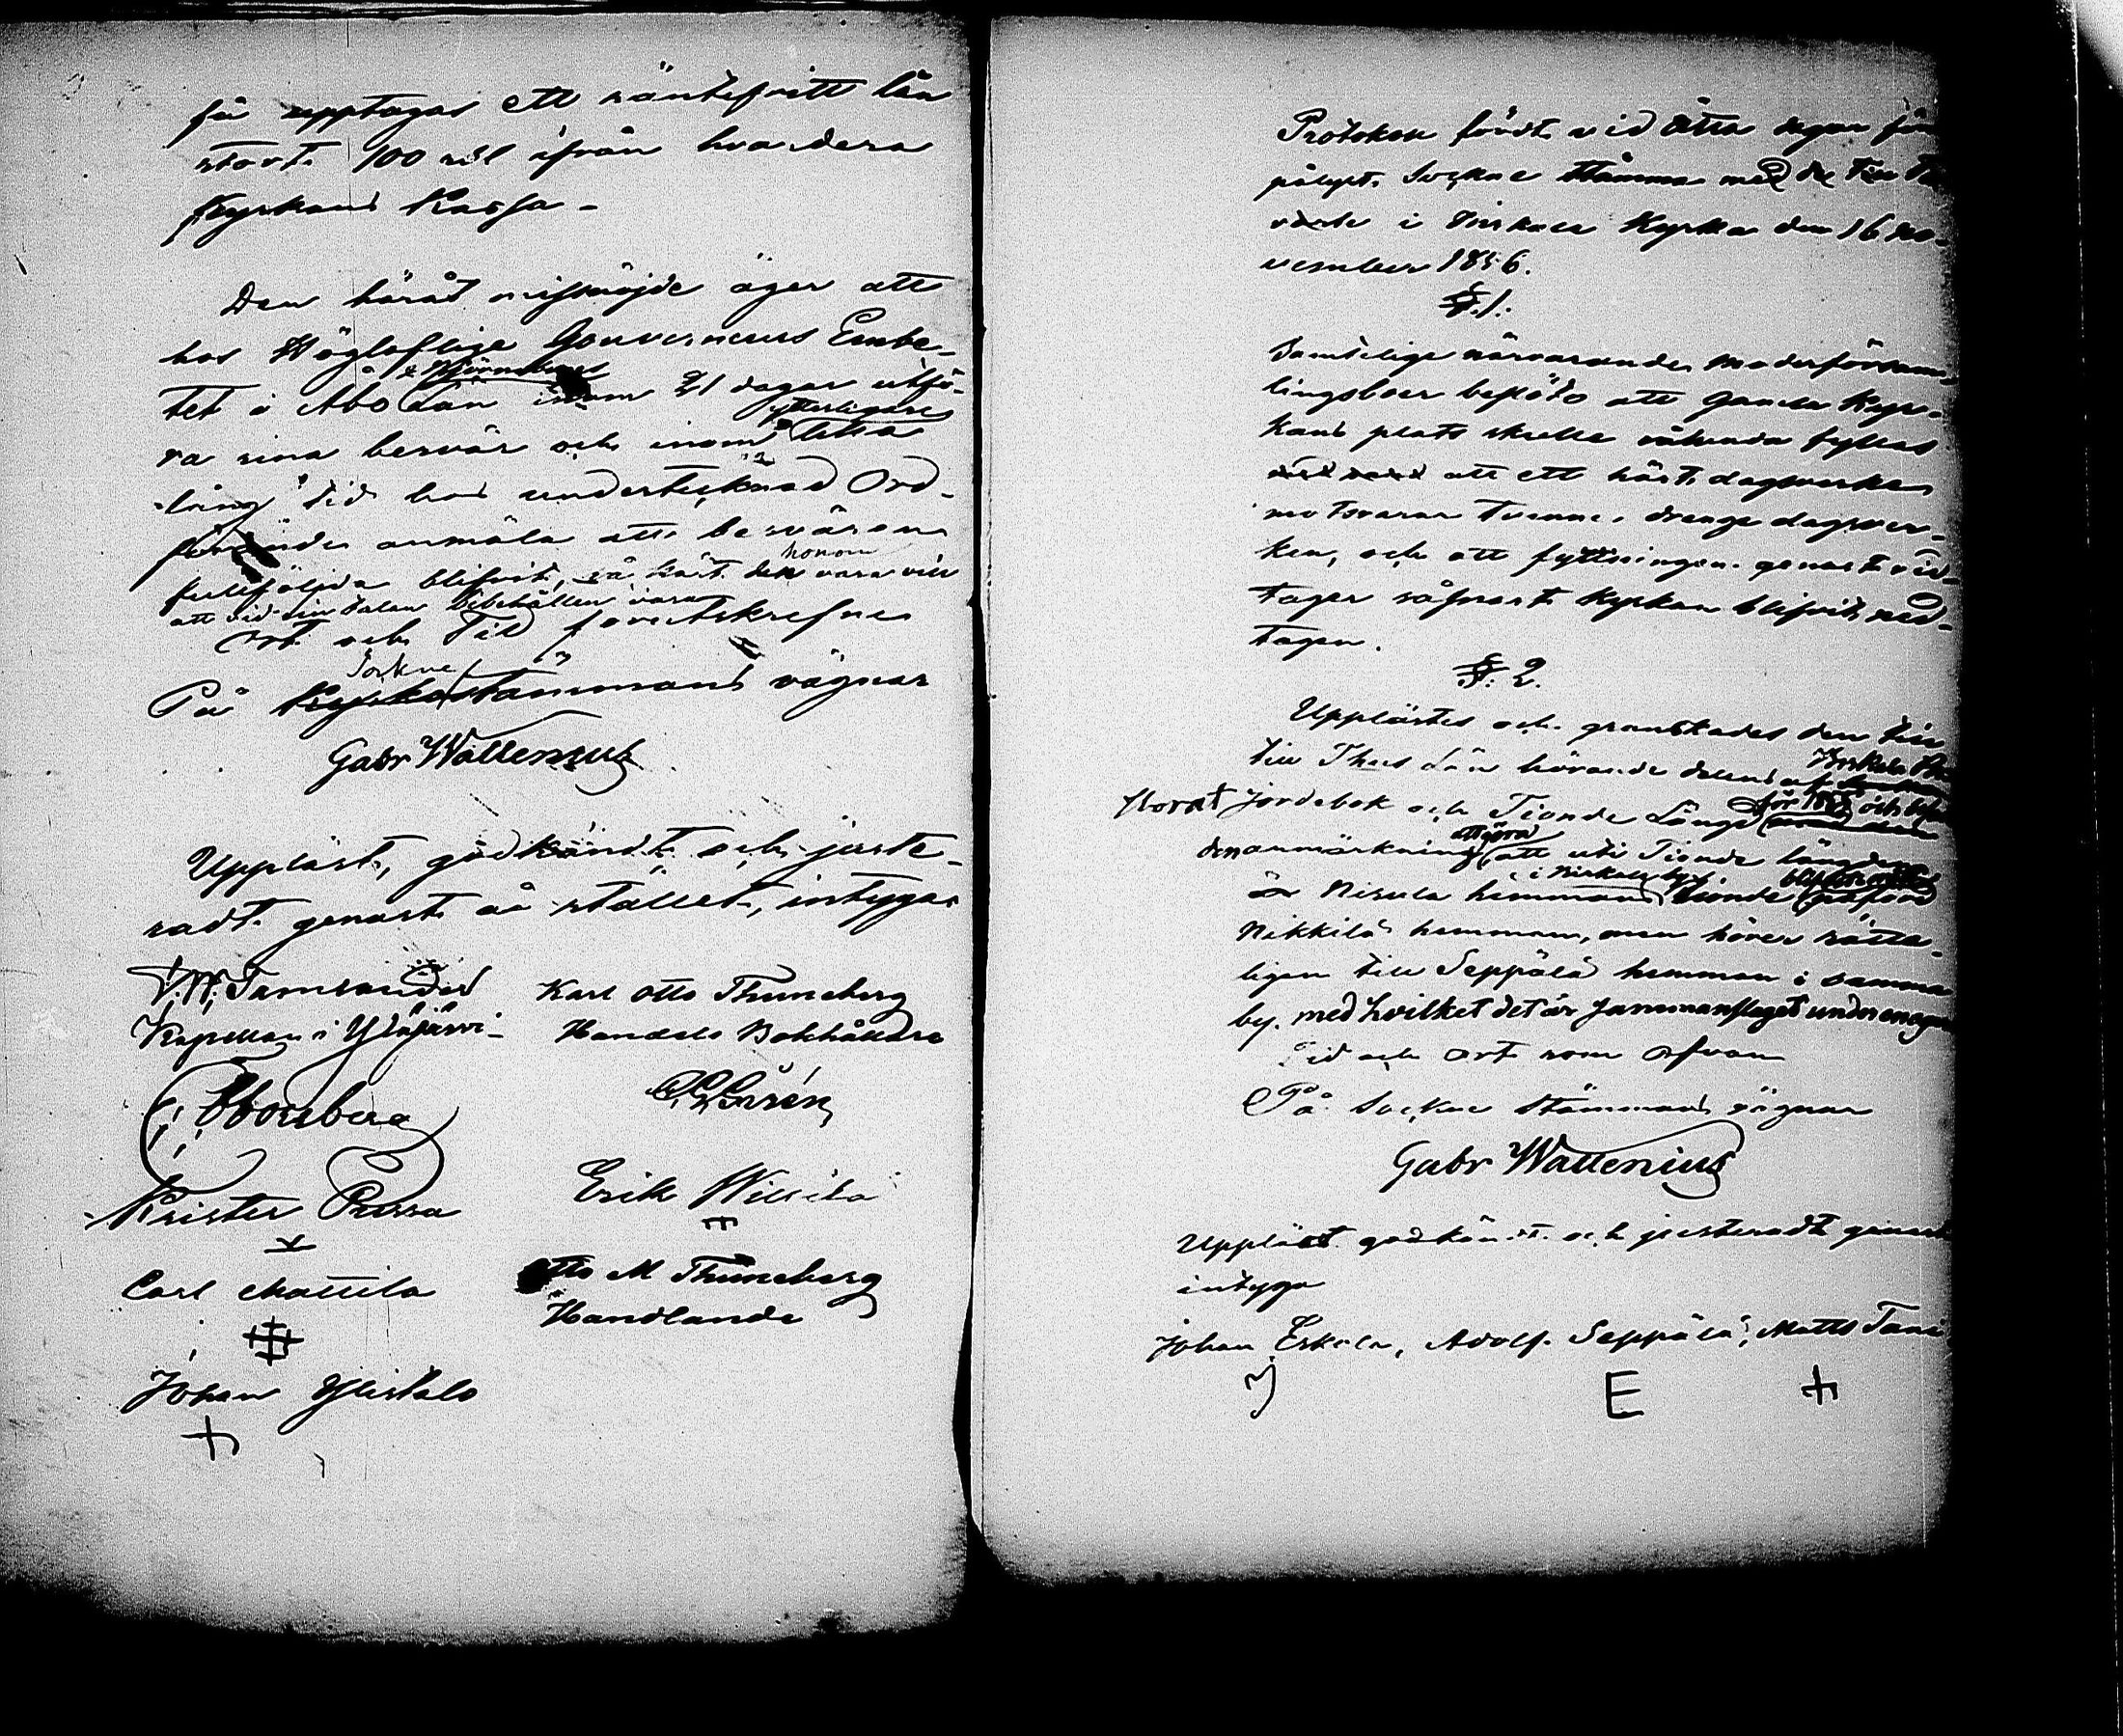 få upptagas ett räntefritt lån
stort 100 rbl ifrån hvardera
kyrkans Kassa.
Den häråt missnöjde äger att
hos Högloflige Gouverneurs Embe-
tet i Åbo & Björneborgs Län inom 21 dagar utfö-
ra sina besvär och inom ytterligare lika
lång tid hos undertecknad Ord-
förande anmäla att besvären
fullföljda blifvit, så kärt honom vara vill
att vid sin talan bibehållen vara
Ort och Tid föruttskrefne
På Sockne stämmans vägnar
Gabr Wallenius
Uppläst, godkändt och juste-
radt genast å stället, intygar
Kapellan i Ylöjärvi
Karl Otto Thuneberg
Handels Bokhållare
Krister Pussa
Erik Willila
Carl Mattila
Otto M Thuneberg
Handlande
Johan Ylistalo
Protokoll fördt vid åtta dagar för
pålyst Sockne stämma med de till
i Birkala Kyrka den 16 No-
vember 1856.
§.1.
Samtelige närvarande moderförsam-
lingsboer beslöto att gamla Kyr-
kans plats skulle sålunda fyllas
att ett häst dagsverke
motsvarar tvenne drenge dagsver-
ken, och att fyllningen genast vid-
tager såsnart Kyrkan blifvit ned-
tagen.
§. 2.
Upplästes och granskades den till
till Thus Län hörande delens af Birkala
Storat jordebok och Tionde Längd för och
den anmärkning att göra att uti Tionde längden
är Nisula hemmans i Nirkala by tionde blifvit påförd
Nikkilä hemman, men hörer rätte-
ligen till Seppälä hemman i samma
by. med hvilket det är sammanslaget under en egare
Tid och ort som ofvan
På Sockne stämmans vägnar
Gabr Wallenius
Uppläst godkändt och justeradt genast
intyga
Johan Eskola, Adolf Seppälä, Matts
E